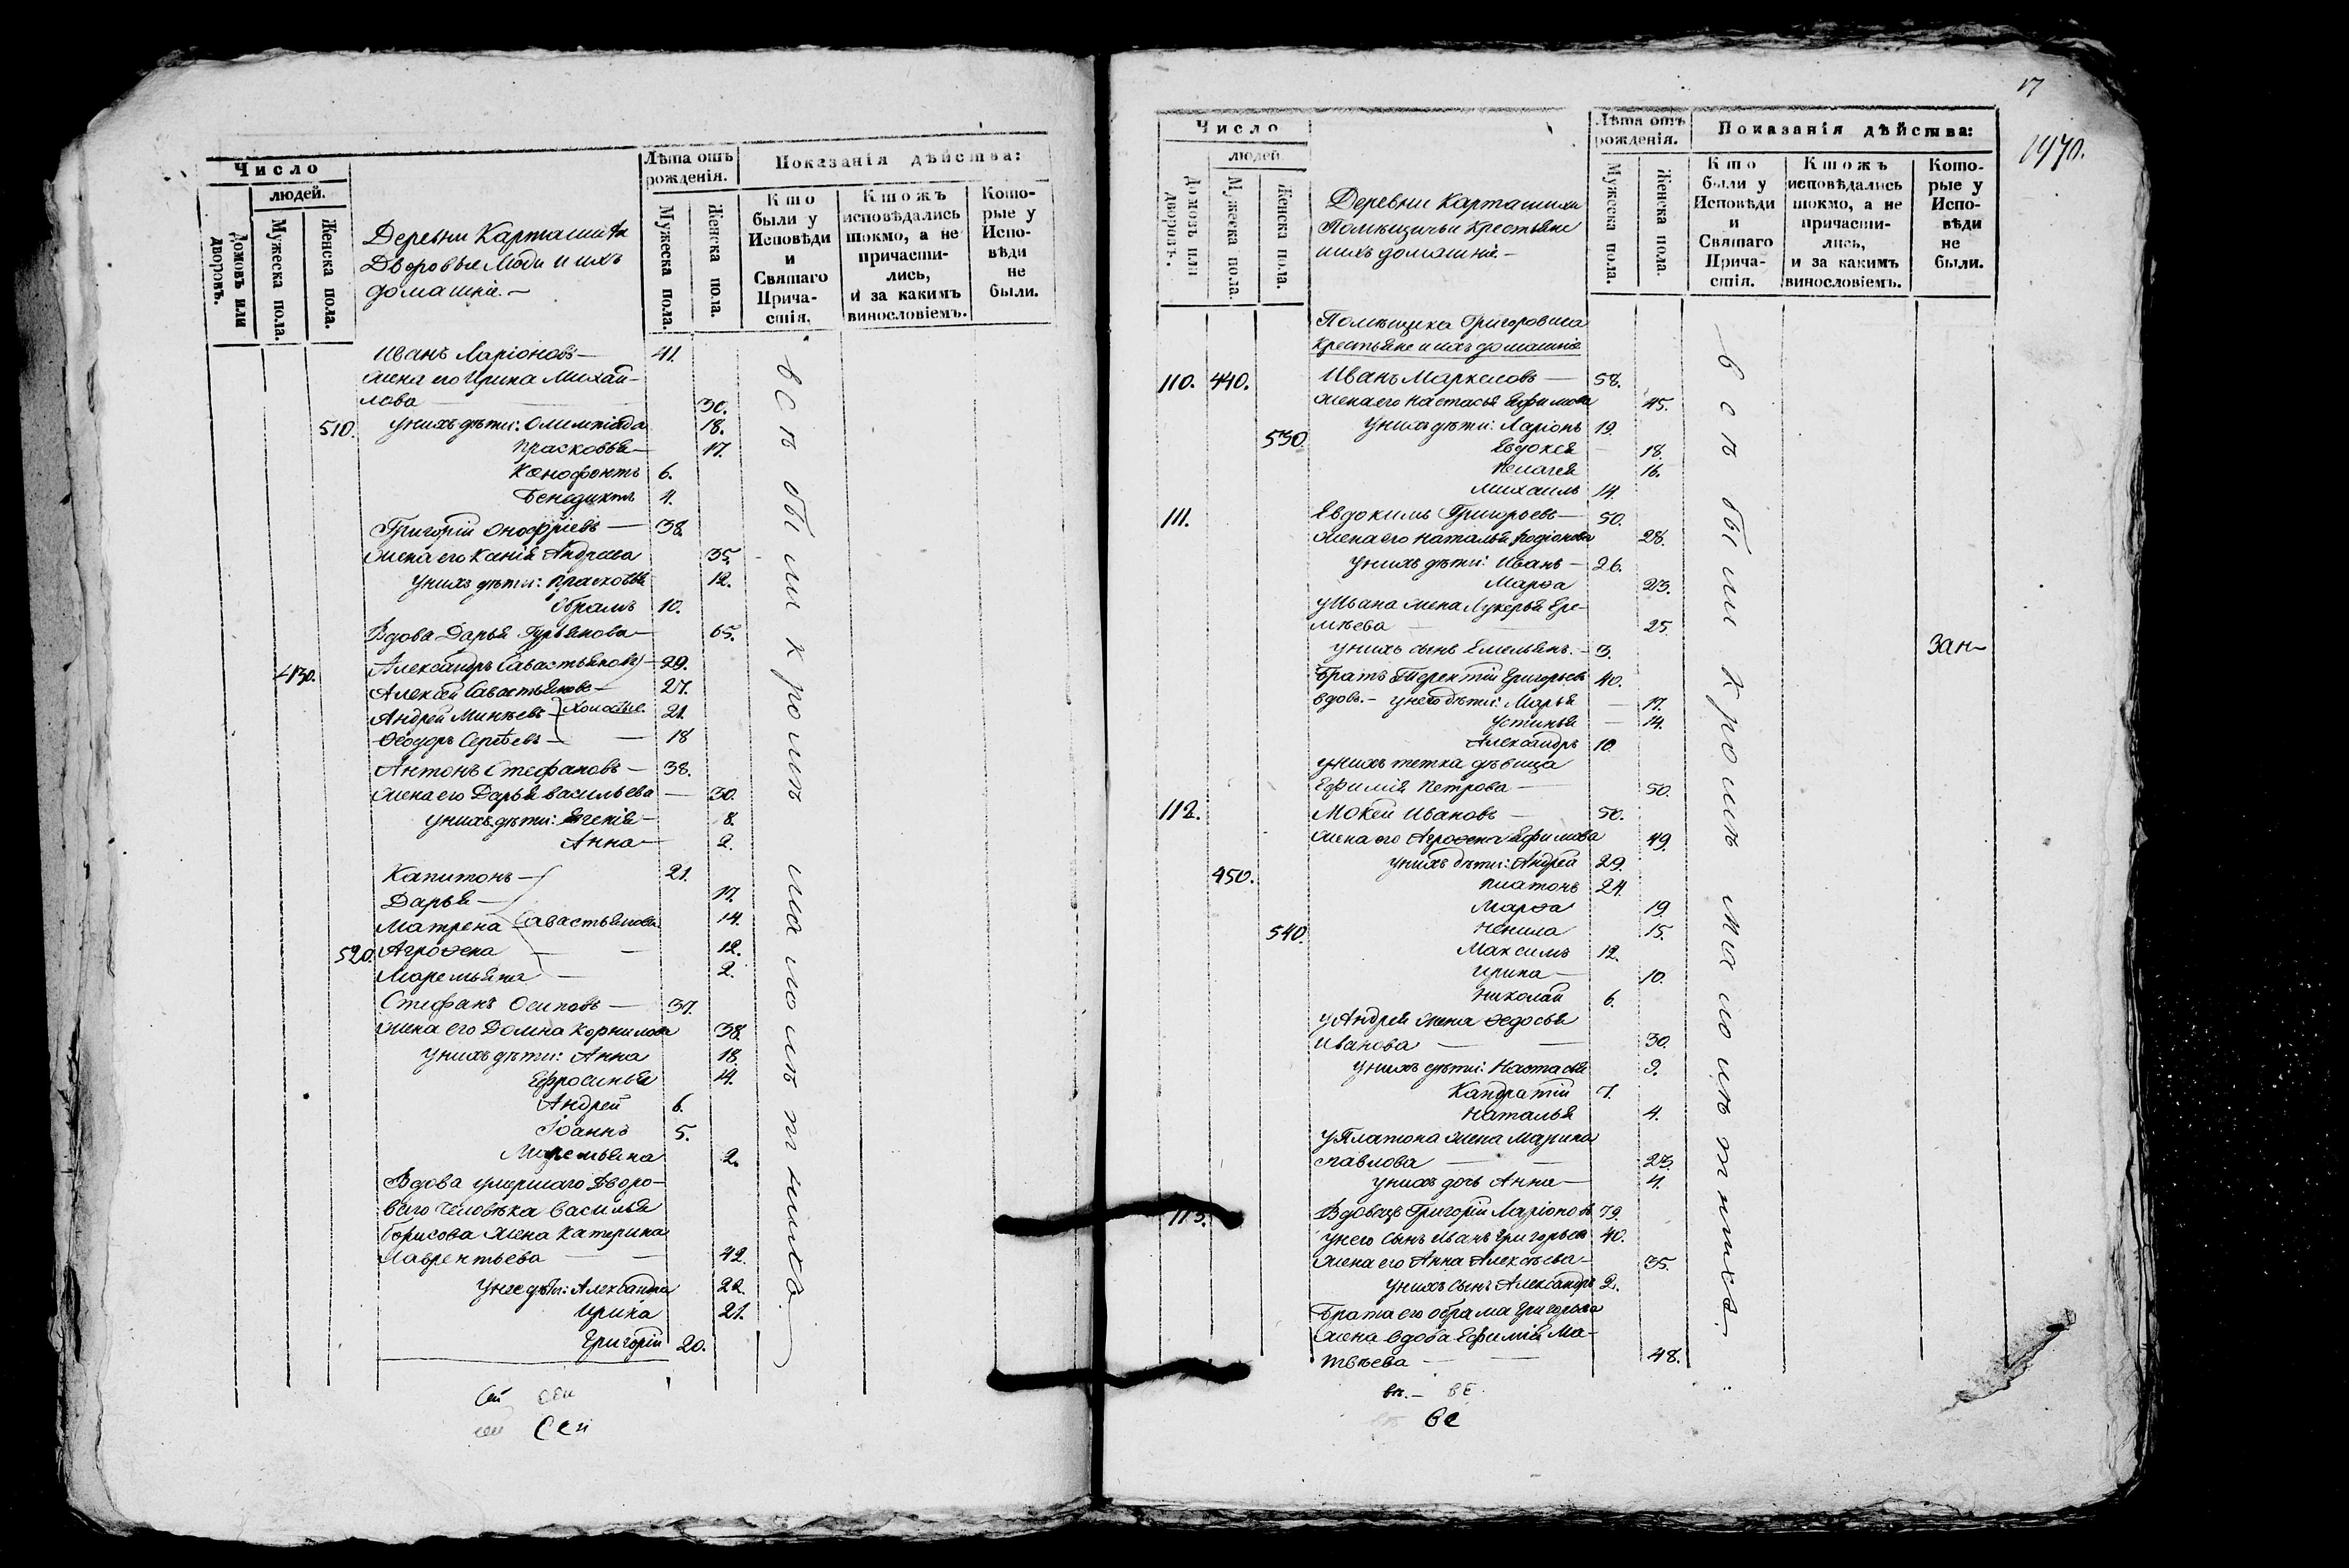 Число
людей.
Домовъ или дворовъ.
Мужеска пола.
Женска пола.
Деревни Карташихи
Дворовые Люди и ихъ
домашніе.-
Лѣта отъ рожденія.
Мужеска пола.
Женска пола.
Показанія дѣйства:
Кто были у Исповѣди и Святаго Причастія.
Ктожъ исповѣдались токмо, а не причастились, и за какимъ винословіемъ.
Которые у Исповѣди не были.
Иванъ Ларіоновъ — 41.
Жена его Ирина Михай-
лова — 30.
510. У нихъ дѣти: Олимпіада 18.
Прасковья — 17.
Ксенофонтъ 6.
Бенедиктъ 4.
Григорій Онофріевъ — 38.
Жена его Ксенія Андреева 35.
У нихъ дѣти: Прасковья 12.
Абрамъ 10.
Вдова Дарья Гурьянова — 65.
430. Александръ Савастьяновъ — 29.
Алексѣй Савастьяновъ — 27.
Андрей Минѣевъ — Холостые 21.
Ѳеодоръ Сергѣевъ — 18
Антонъ Стефановъ — 38.
Жена его Дарья Васильева — 30.
У нихъ дѣти: Евгенія — 8.
Анна — 2.
Капитонъ — 21.
Дарья — 17.
Матрена Савастьяновы 14.
520. Агроѳена — 12.
Маремьяна — 2.
Стефанъ Осиповъ — 37.
Жена его Домна Корнилова 38.
У нихъ дѣти: Анна 18.
Ефросинья 14.
Андрей 6.
Іоаннъ 5.
Маремьяна 2.
Вдова умершаго Дворо-
ваго Человѣка Василья
Борисова Жена Катерина
Лаврентьева — 42.
У нее дѣти: Александра 22.
Ирина 21.
Григорій 20.
всѣ были кромѣ малолѣтнихъ.
Сей
Сей
17
1970.
Число
людей.
Домовъ или дворовъ.
Мужеска пола.
Женска пола.
Деревни Карташихи
Помѣщичьи Крестьяне
и ихъ домашніе.-
Лѣта отъ рожденія.
Мужеска пола.
Женска пола.
Показанія дѣйства:
Кто были у Исповѣди и Святаго Причастія.
Ктожъ исповѣдались токмо, а не причастились, и за какимъ винословіемъ.
Которые у Исповѣди не были.
Помѣщика Григоровича
Крестьяне и ихъ домашніе
110. 440. Иванъ Маркеловъ — 58.
Жена его Настасья Ефимова 45.
530. У нихъ дѣти: Ларіонъ 19.
Евдокея — 18.
Пелагея 16.
Михаилъ 14.
111. Евдокимъ Григорьевъ — 50.
Жена его Наталья Родіонова 28.
У нихъ дѣти: Иванъ — 26.
Марѳа 23.
У Ивана Жена Лукерья Ере-
мѣева — 25.
У нихъ сынъ Емельянъ. — 3.
Братъ Терентій Григорьевъ 40.
вдовъ. — у него дѣти: Марья — 17.
Устинья — 14.
Александръ 10.
У нихъ тетка дѣвица
Ефимія Петрова — 50.
112. Мокей Ивановъ — 50.
Жена его Агроѳена Ефимова 49.
У нихъ дѣти: Андрей 29.
450. Платонъ 24.
Марѳа 19.
540. Ненила 15.
Максимъ 12.
Ирина — 10.
Николай 6.
У Андрея Жена Ѳедосья
Иванова — 30.
У нихъ дѣти: Настасья 9.
Кандратій 7.
Наталья 4.
У Платона Жена Марина
Павлова — 23.
У нихъ дочь Анна — 4.
113. Вдовецъ Григорій Ларіоновъ 79.
У него сынъ Иванъ Григорьевъ 40.
Жена его Анна Алексѣева — 35.
У нихъ сынъ Александръ 2.
Брата его Абрама Григорьева
Жена вдова Ефимія Ма-
твѣева — 48.
всѣ были кромѣ малолѣтнихъ.
Зан-
вѣ. — ве
ве